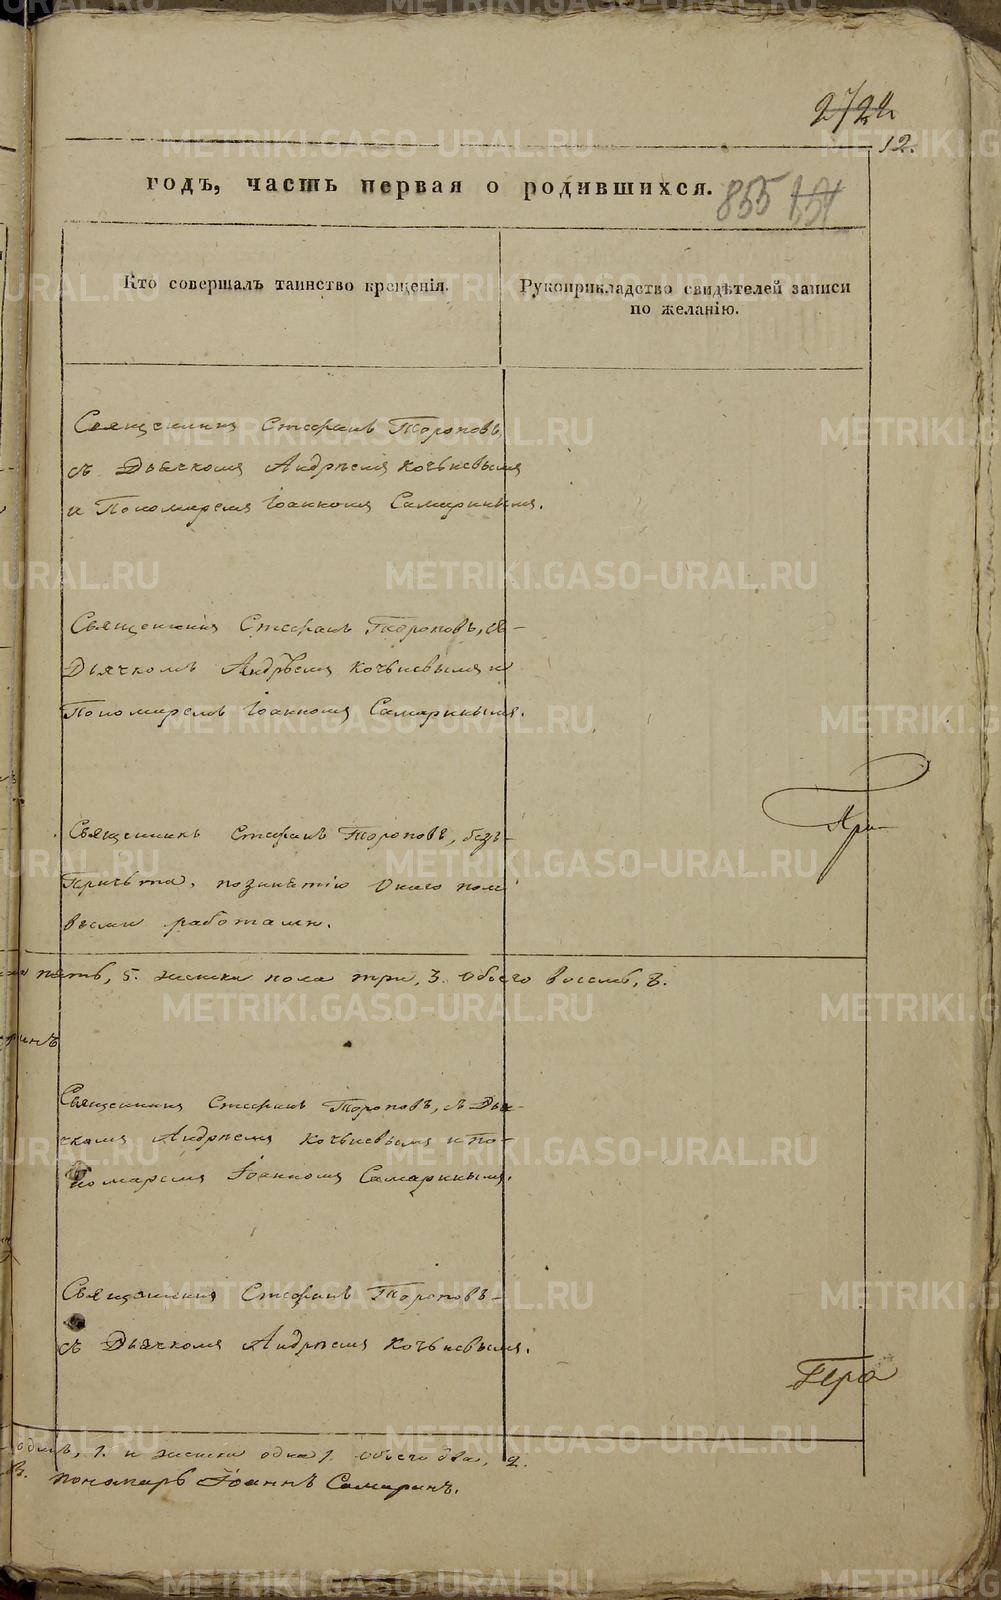 12.
годъ, часть первая о родившихся.
855
Кто совершалъ таинство крещенія.
Рукоприкладство свидѣтелей записи
по желанію.
Священникъ Стефанъ Тороповъ,
съ Дьячкомъ Андреемъ
и Пономаремъ Іоанномъ Самаринымъ.
Священникъ Стефанъ Тороповъ, съ
Дьячкомъ Андрѣемъ и
Пономаремъ Іоанномъ Самаринымъ.
Священникъ Стефанъ Тороповъ, безъ
Причьта, по занятію онаго поле
выми работами.
пять, 5. женска пола три, 3. Обоего восемь, 8.
Священникъ Стефанъ Тороповъ, съ Дья-
чкомъ Андреемъ и По-
номаремъ Іоанномъ Самаринымъ.
Священникъ Стефанъ Тороповъ
съ Дьячкомъ Андреемъ
одинъ, 1. и женска одна 1. Обоего два, 2.
пономарь Іоаннъ Самаринъ.
METRIKI.GASO-URAL.RU